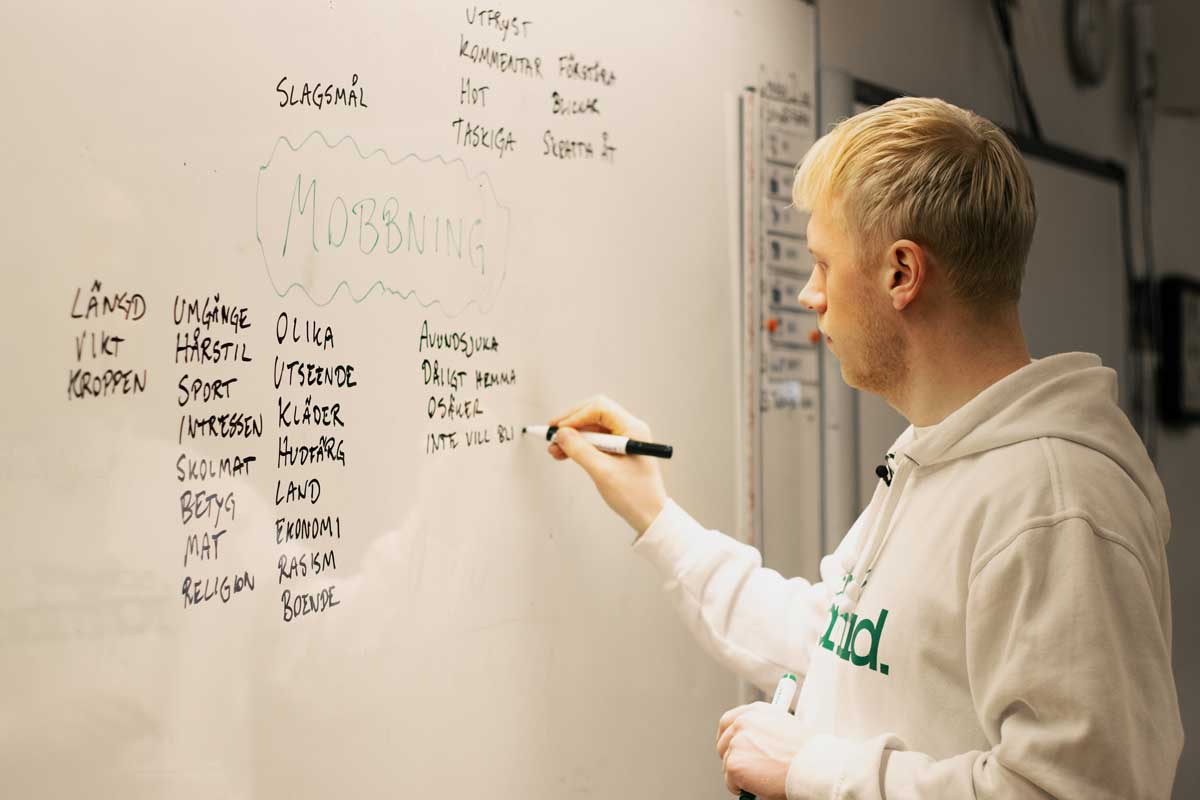 UTFRYST
KOMMENTAR FÖRSTÖRA
HOT BLICKAR
TASKIGA SKRATTA ÅT
SLAGSMÅL
MOBBNING
LÄNGD
VIKT
KROPPEN
UMGÄNGE
HÅRSTIL
SPORT
INTRESSEN
SKOLMAT
BETYG
MAT
RELIGION
OLIKA
UTSEENDE
KLÄDER
HUDFÄRG
LAND
EKONOMI
RASISM
BOENDE
AVUNDSJUKA
DÅLIGT HEMMA
OSÄKER
INTE VILL BLI